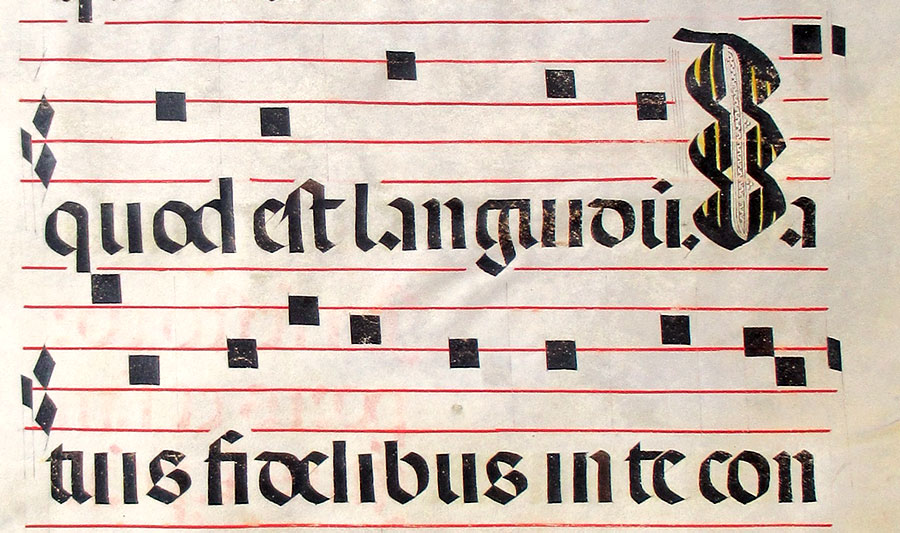 quod est languidū. Da
tuis fidelibus in te con